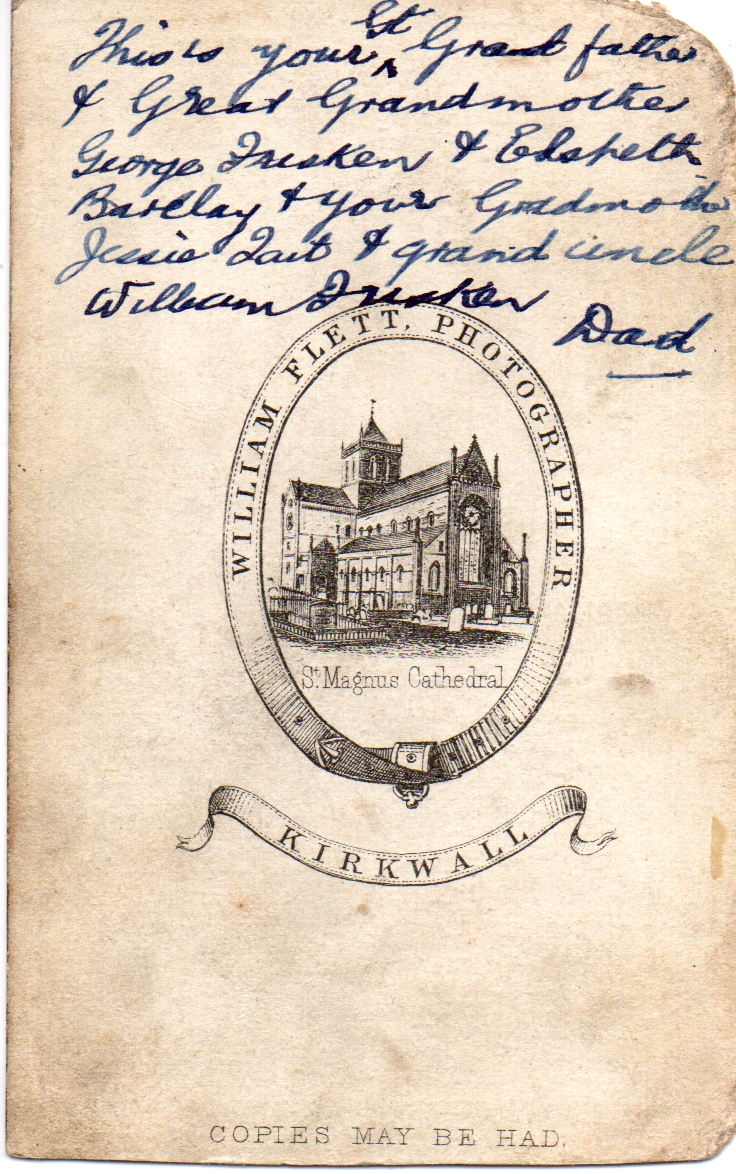 This is your Gt Grand father
& Great Grandmother
George Frisken & Elspeth
Barclay & your Gradmoth
Jessie Tait & grand uncle
William Frisken
Dad
WILLIAM FLETT, PHOTOGRAPHER
St. Magnus Cathedral
KIRKWALL
COPIES MAY BE HAD.